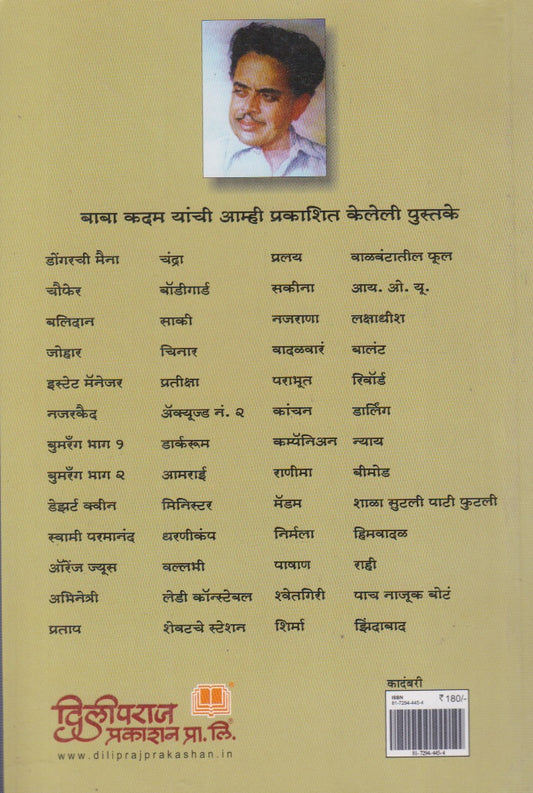 बाबा कदम यांची आम्ही प्रकाशित केलेली पुस्तके
डोंगरची मैना चंद्रा प्रलय वाळवंटातील फूल
चौफेर बॉडीगार्ड सकीना आय. ओ. यू.
बलिदान साकी नजराणा लक्षाधीश
जोहार चिनार वादळवारं बालंट
इस्टेट मॅनेजर प्रतीक्षा पराभूत रिवॉर्ड
नजरकैद ॲक्यूज्ड नं. २ कांचन डार्लिंग
बुमरँग भाग १ डार्करूम कम्पॅनिअन न्याय
बुमरँग भाग २ आमराई राणीमा बीमोड
डेझर्ट क्वीन मिनिस्टर मॅडम शाळा सुटली पाटी फुटली
स्वामी परमानंद धरणीकंप निर्मला हिमवादळ
ऑरेंज ज्यूस वल्लभी पाषाण राही
अभिनेत्री लेडी कॉन्स्टेबल श्वेतगिरी पाच नाजूक बोटं
प्रताप शेवटचे स्टेशन शिर्मा झिंदाबाद
कादंबरी
ISBN ₹ 180/-
81-7294-445-4
81-7294-445-4
दिलीपराज
प्रकाशन प्रा. लि.
www.diliprajprakashan.in